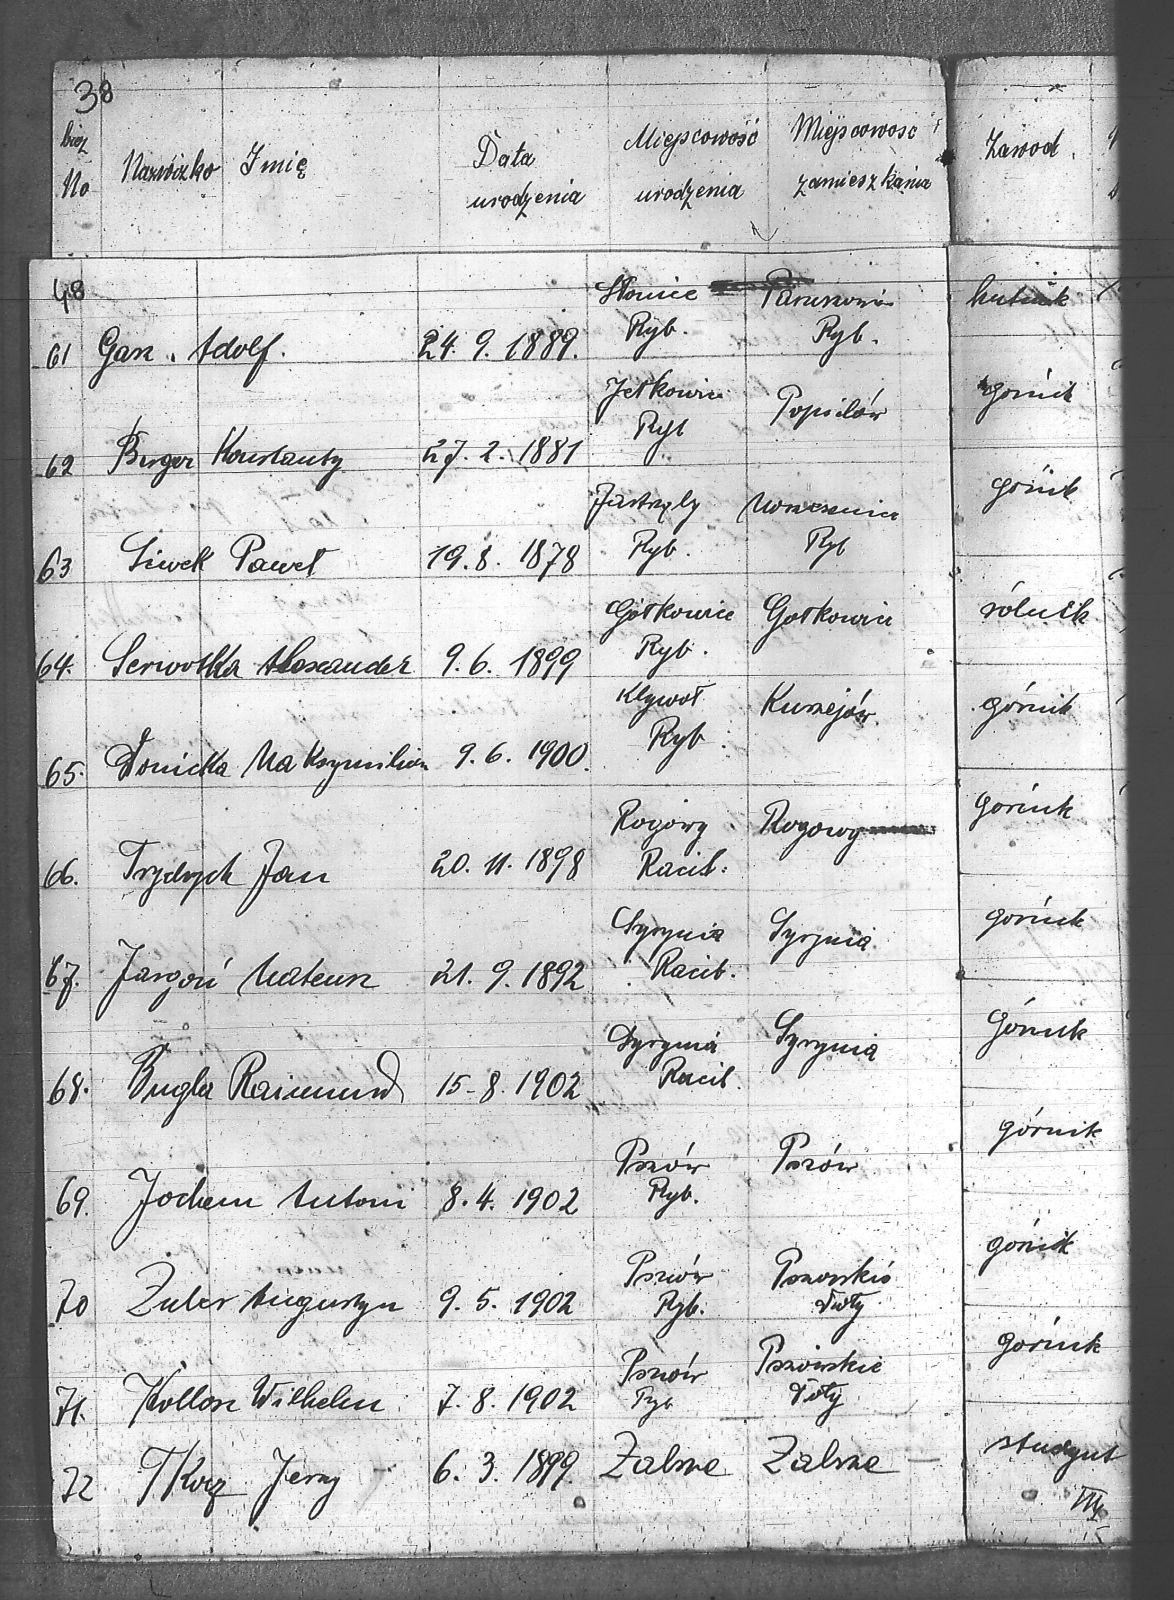 38
bież No Nazwisko Imię Data urodzenia Miejscowość urodzenia Miejscowosc zamieszkania Zawod
48
61 Adolf. 24. 9. 1889. Ryb. Ryb. hutnik
62 Konstanty 27. 2. 1881 Jetkowice Ryb Popielów górnik
63 Siwek Paweł 19. 8. 1878 Ryb. Ryb górnik
64. Serwotka Alexander 9. 6. 1899 Gotkowice Ryb. Gotkowice rólnik
65. Maksymilian 9. 6. 1900. Ryb. górnik
66. Frydrych Jan 20. 11. 1898 Rogowy Racib. Rogowy górnik
67. Jargoń Mateusz 21. 9. 1892 Syrynia Racib. Syrynia górnik
68. Bugla Raimund 15-8. 1902 Syrynia Racib. Syrynia górnik
69. Jochem Antoni 8. 4. 1902 Pszów Ryb. Pszów górnik
70 Zuber Augustyn 9. 5. 1902 Pszów Ryb. Pszowskie Doły górnik
71. Wilhelm 7. 8. 1902 Pszów Ryb Pszowskie Doły górnik
72 Tkocz Jerzy 6. 3. 1899. Zabrze Zabrze student